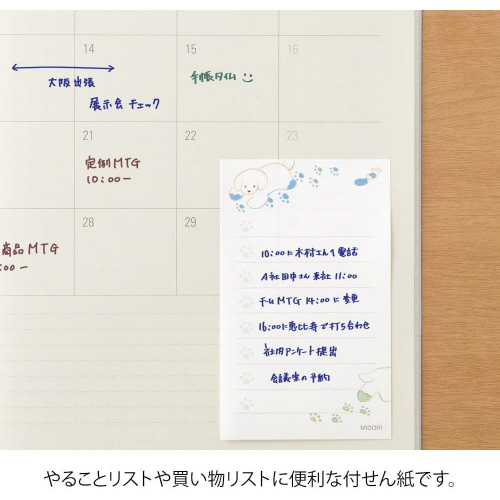 14 15 16
大阪出張
展示会チェック
手帳タイム
21 22 23
定例MTG
10:00-
28 29
商品MTG
:00-
10:00に木村さんへ電話
A社田中さん来社11:00
チームMTG 14:00に変更
16:00に恵比寿で打ち合わせ
社内アンケート提出
会議室の予約
MIDORI
やることリストや買い物リストに便利な付せん紙です。